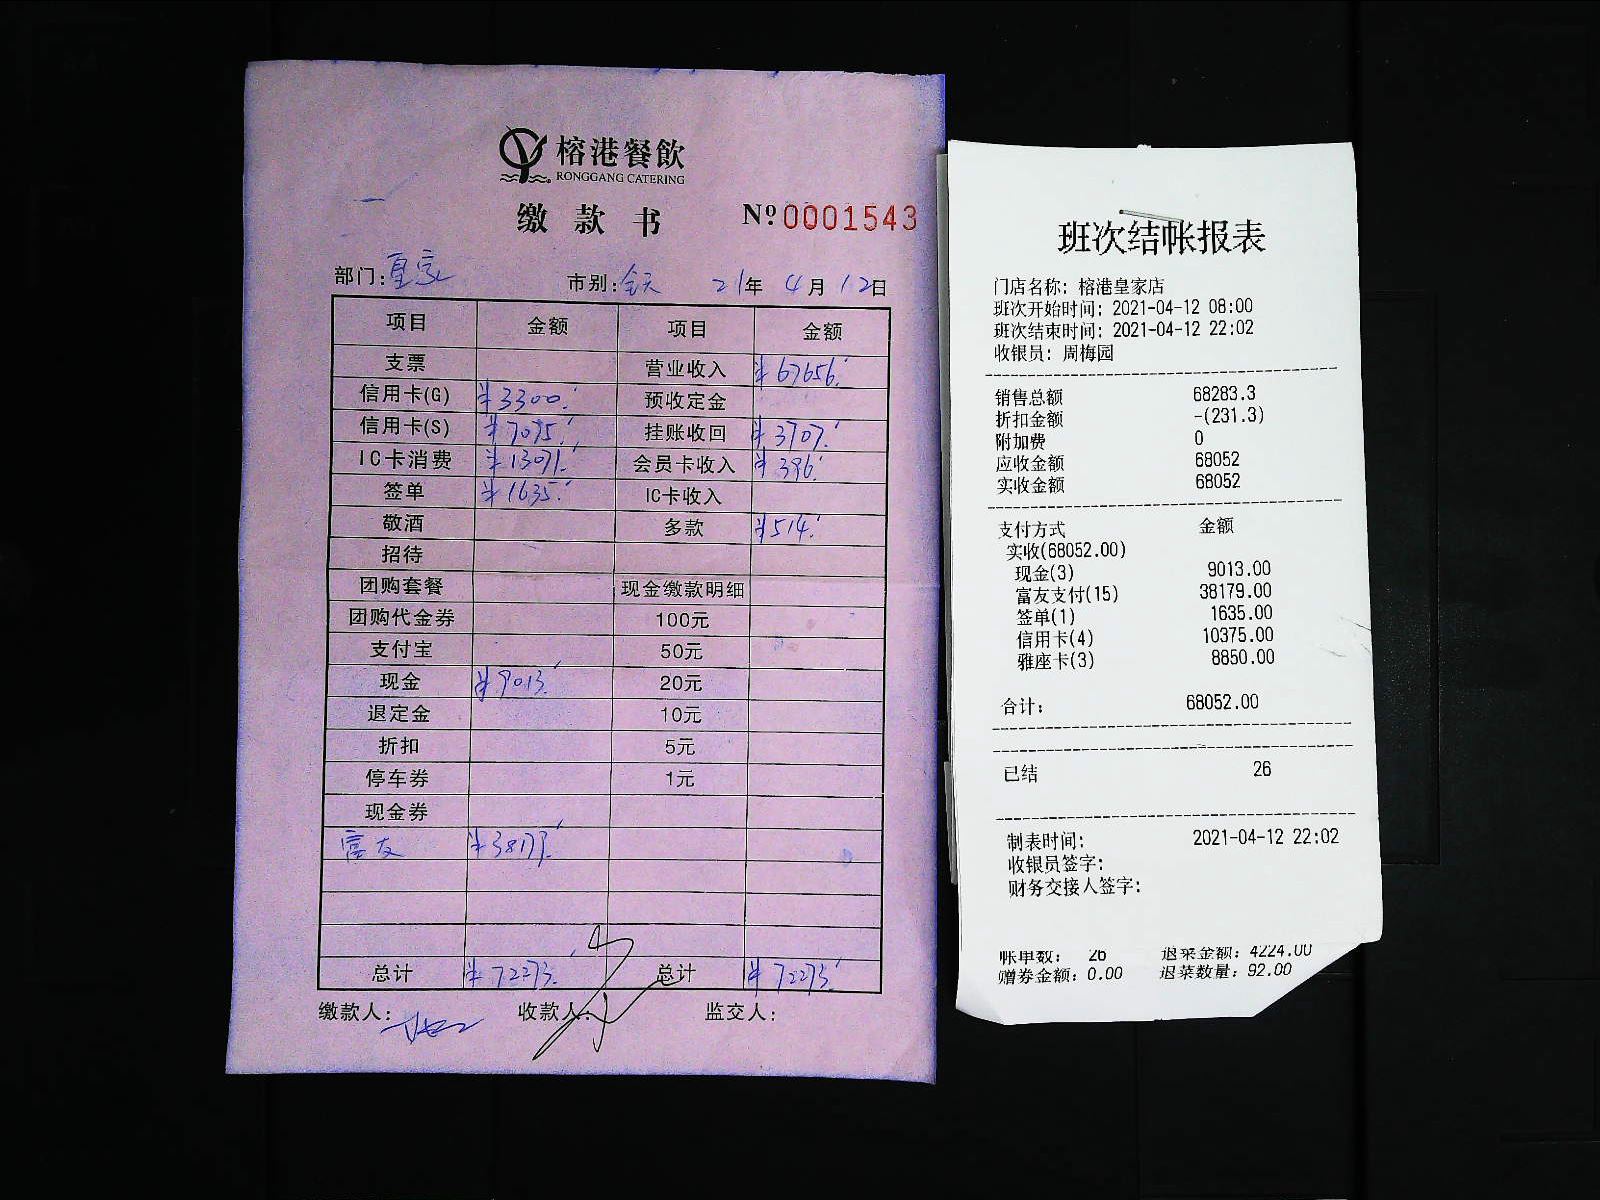 榕港餐飲
RONGGANG CATERING
缴款书 Nº0001543
部门:皇家 市别:全天 21年4月12日
项目 金额 项目 金额
支票 营业收入 ¥67656.
信用卡(G) ¥3300. 预收定金
信用卡(S) ¥7075. 挂账收回 ¥3707.
IC卡消费 ¥13071. 会员卡收入 ¥396.
签单 ¥1635. IC卡收入
敬酒 多款 ¥514.
招待
团购套餐 现金缴款明细
团购代金券 100元
支付宝 50元
现金 ¥9013. 20元
退定金 10元
折扣 5元
停车券 1元
现金券
富友 ¥38179.
总计 ¥72273. 总计 ¥72273.
缴款人: 收款人: 监交人:
班次结帐报表
门店名称: 榕港皇家店
班次开始时间: 2021-04-12 08:00
班次结束时间: 2021-04-12 22:02
收银员: 周梅园
销售总额 68283.3
折扣金额 -(231.3)
附加费 0
应收金额 68052
实收金额 68052
支付方式 金额
实收(68052.00)
现金(3) 9013.00
富友支付(15) 38179.00
签单(1) 1635.00
信用卡(4) 10375.00
雅座卡(3) 8850.00
合计: 68052.00
已结 26
制表时间: 2021-04-12 22:02
收银员签字:
财务交接人签字:
账单数: 26 退菜金额: 4224.00
赠券金额: 0.00 退菜数量: 92.00